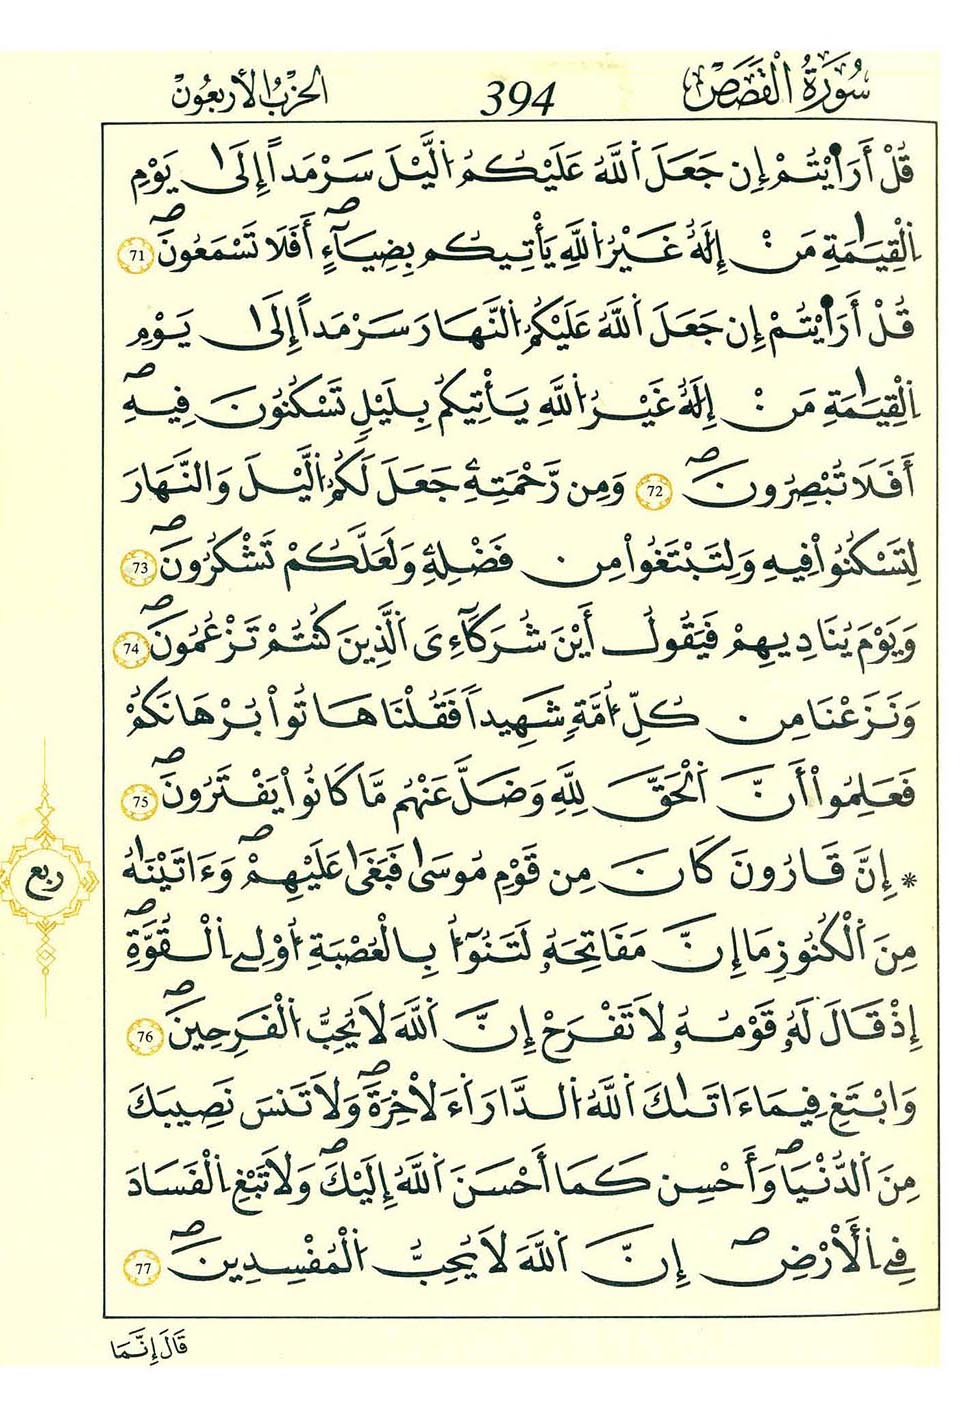 سُورَةُ الْقَصَصِ 394 الحِزْبُ الأَرْبَعُونَ
قُلْ أَرَٰيْتُمْ إِن جَعَلَ اَ۬للَّهُ عَلَيْكُمُ اُ۬ليْلَ سَرْمَداً إِلَىٰ يَوْمِ
اِ۬لْقِيَٰمَةِ مَنْ إِلَٰهٌ غَيْرُ اُ۬للَّهِ يَأْتِيكُم بِضِيَآءٍۖ أَفَلَا تَسْمَعُونَۖ 71
قُلْ أَرَٰيْتُمْ إِن جَعَلَ اَ۬للَّهُ عَلَيْكُمُ اُ۬لنَّهَارَ سَرْمَداً إِلَىٰ يَوْمِ
اِ۬لْقِيَٰمَةِ مَنْ إِلَٰهٌ غَيْرُ اُ۬للَّهِ يَأْتِيكُم بِلَيْلٍ تَسْكُنُونَ فِيهِۖ
أَفَلَا تُبْصِرُونَۖ 72 وَمِن رَّحْمَتِهِۦ جَعَلَ لَكُمُ اُ۬ليْلَ وَالنَّهَارَ
لِتَسْكُنُواْ فِيهِ وَلِتَبْتَغُواْ مِن فَضْلِهِۦ وَلَعَلَّكُمْ تَشْكُرُونَۖ 73
وَيَوْمَ يُنَادِيهِمْ فَيَقُولُ أَيْنَ شُرَكَآءِيَ اَ۬لذِينَ كُنتُمْ تَزْعُمُونَۖ 74
وَنَزَعْنَا مِن كُلِّ أُمَّةٍ شَهِيداً فَقُلْنَا هَاتُواْ بُرْهَانَكُمْ
فَعَلِمُواْ أَنَّ اَ۬لْحَقَّ لِلَّهِ وَضَلَّ عَنْهُم مَّا كَانُواْ يَفْتَرُونَۖ 75
* إِنَّ قَارُونَ كَانَ مِن قَوْمِ مُوسَىٰ فَبَغَىٰ عَلَيْهِمْۖ وَءَاتَيْنَٰهُ
مِنَ اَ۬لْكُنُوزِ مَا إِنَّ مَفَاتِحَهُۥ لَتَنُوٓأُ بِالْعُصْبَةِ أُوْلِے اِ۬لْقُوَّةِۖ
إِذْ قَالَ لَهُۥ قَوْمُهُۥ لَا تَفْرَحْ إِنَّ اَ۬للَّهَ لَا يُحِبُّ اُ۬لْفَرِحِينَۖ 76
وَابْتَغِ فِيمَا ءَاتَىٰكَ اَ۬للَّهُ اُ۬لدَّارَ اَ۬لَاخِرَةَۖ وَلَا تَنسَ نَصِيبَكَ
مِنَ اَ۬لدُّنْيَاۖ وَأَحْسِن كَمَا أَحْسَنَ اَ۬للَّهُ إِلَيْكَۖ وَلَا تَبْغِ اِ۬لْفَسَادَ
فِے اِ۬لْأَرْضِۖ إِنَّ اَ۬للَّهَ لَا يُحِبُّ اُ۬لْمُفْسِدِينَۖ 77
ربع
قَالَ إِنَّمَا